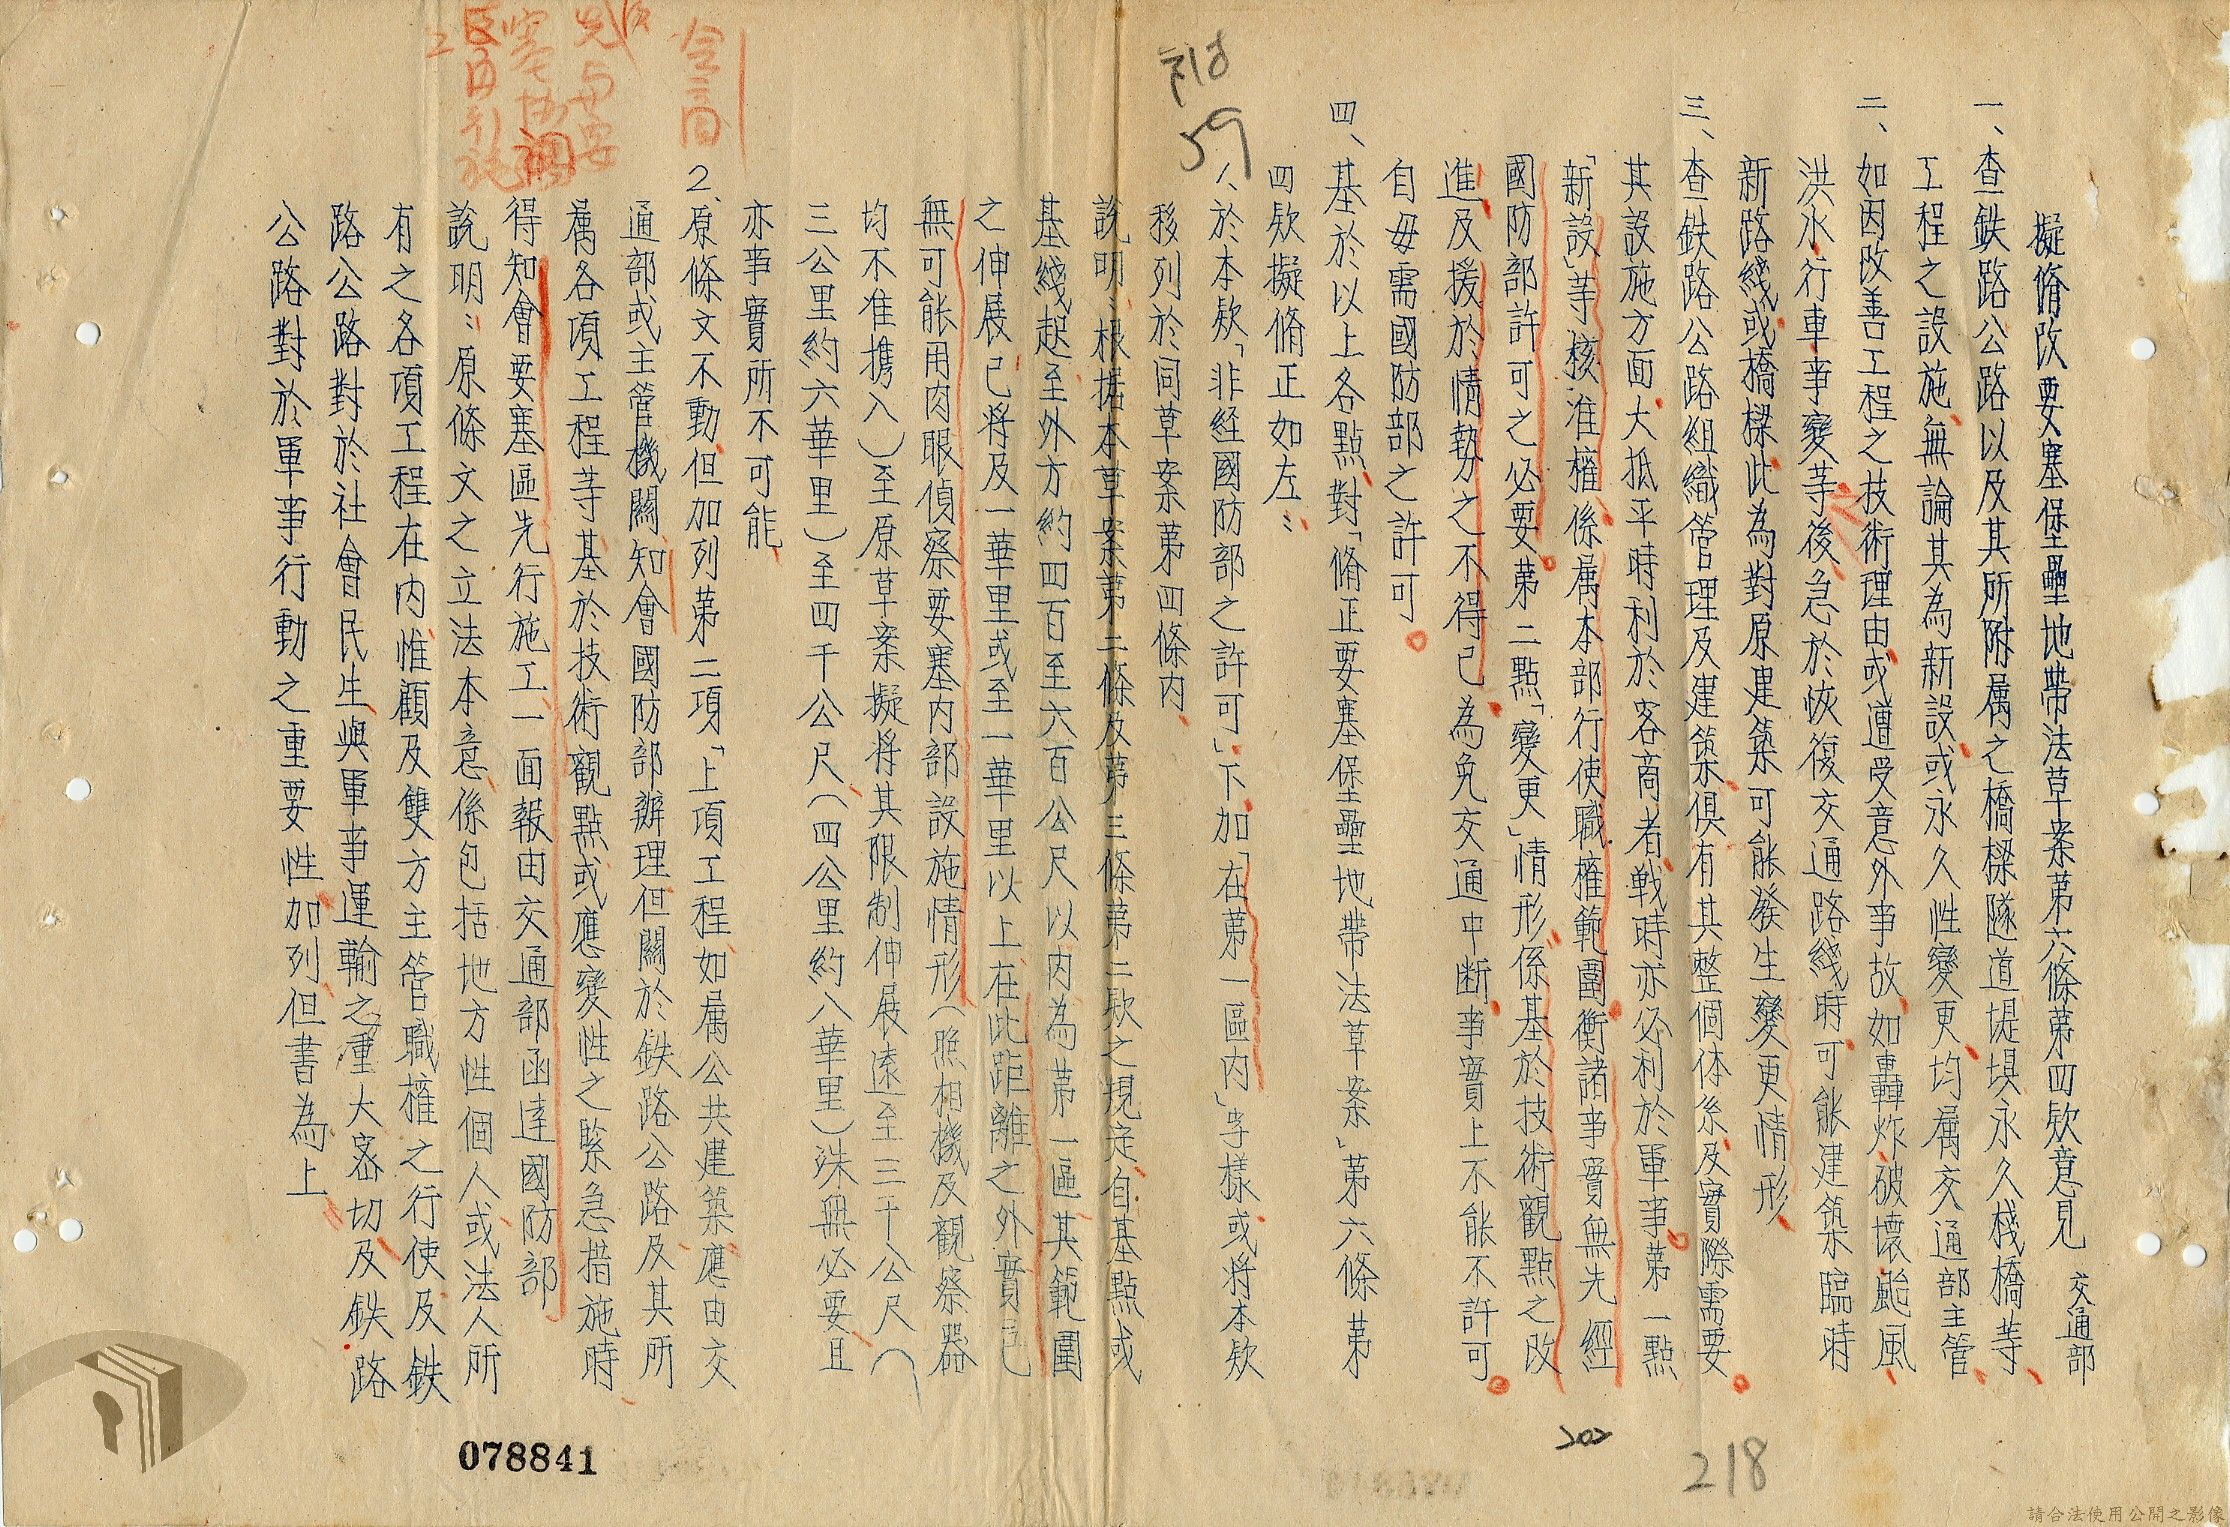 擬脩改要塞堡壘地帶法草案第六條第四欵意見 交通部
一、查鉄路公路以及其所附属之橋樑隧道堤垻永久棧橋等
工程之設施、無論其為新設、或永久性變更、均属交通部主管、
如因改善工程之技術理由、或遭受意外事故、如轟炸破壞颱風
二、
洪水、行車事變等後、急於恢復交通路綫時、可能建築臨時
新路綫、或橋樑、此為對原建築、可能發生變更情形、
三、查鉄路公路組織管理及建築、俱有其整個体系、及實際需要。
其設施方面、大抵平時利於客商者、戰時亦必利於軍事。第一點
「新設」等核准權、係属本部行使職權範圍、衡諸事實、無先經
國防部許可之必要。第二點「變更」情形、係基於技術觀點之改
進、及援於情勢之不得已、為免交通中断、事實上不能不許可。
自毋需國防部之許可。
四、基於以上各點、對「脩正要塞堡壘地帶法草案」第六條第
四欵擬脩正如左：
1、於本欵「非経國防部之許可」下、加「在第一區内」字樣、或将本欵
移列於同草案第四條内、
說明：根据本草案第二條及第三條第二欵之規定、自基點或
基綫起至外方約四百至六百公尺以内為第一區、其範圍
之伸展、已将及一華里或至一華里以上、在此距離之外、實已
無可能用肉眼偵察要塞内部設施情形（照相機及觀察器
均不准携入）至原草案擬将其限制伸展遠至三千公尺（
三公里約六華里）至四千公尺（四公里約八華里）洙無必要、且
亦事實所不可能、
2、原條文不動、但加列第二項「上項工程、如属公共建築、應由交
通部或主管機關、知會國防部辦理、但關於鉄路公路、及其所
属各項工程等、基於技術觀點、或應變性之緊急措施時、
得知會要塞區先行施工、一面報由交通部函達國防部
說明：原條文之立法本意、係包括地方性個人、或法人所
有之各項工程在内、惟顧及雙方主管職權之行使、及鉄
路公路對於社會民生、與軍事運輸之重大密切、及鉄路
公路對於軍事行動之重要性、加列但書為上、
令三面
先与要
塞協調
後再引施
59
202
218
078841
請合法使用公開之影像